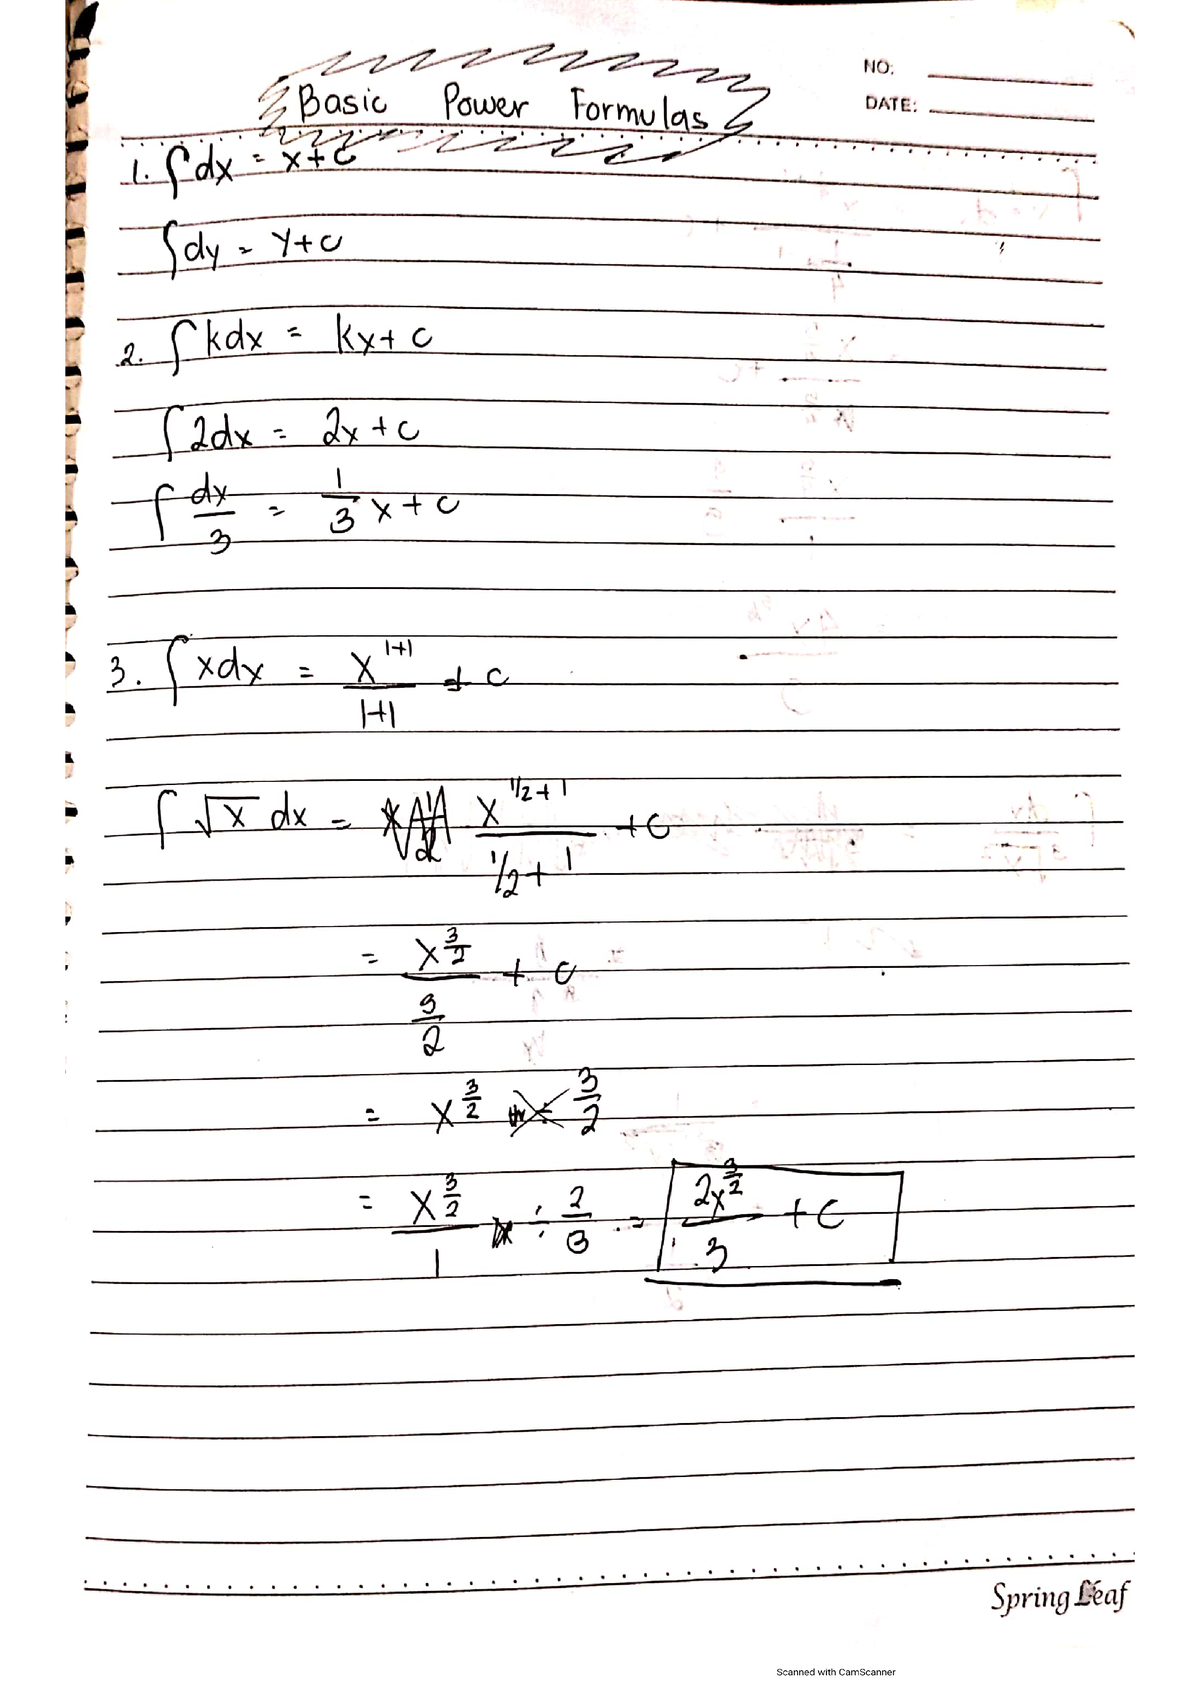 NO:
DATE:
Basic Power Formulas
1. ∫dx = x+c
∫dy = y+c
2. ∫kdx = kx+c
∫2dx = 2x+c
∫dx/3 = 1/3 x+c
3. ∫xdx = x^(1+1)/(1+1) + c
∫√x dx = x^(1/2+1)/(1/2+1) + c
= x^(3/2)/(3/2) + c
= x^(3/2) 3/2
= x^(3/2)/1 ÷ 2/3 = 2x^(3/2)/3 + c
Spring Leaf
Scanned with CamScanner